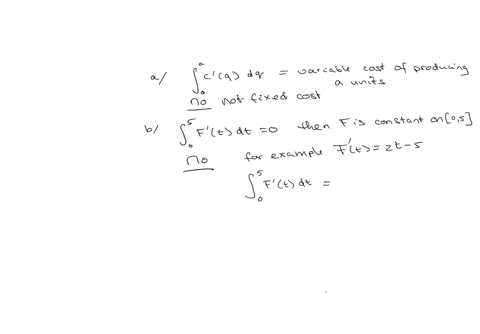 a/ ∫₀ᵃ c'(q) dq = variable cost of producing
a units
no not fixed cost
b/ ∫₀⁵ F'(t) dt = 0 then F is constant on [0,5]
no for example F'(t) = 2t - 5
∫₀⁵ F'(t) dt =